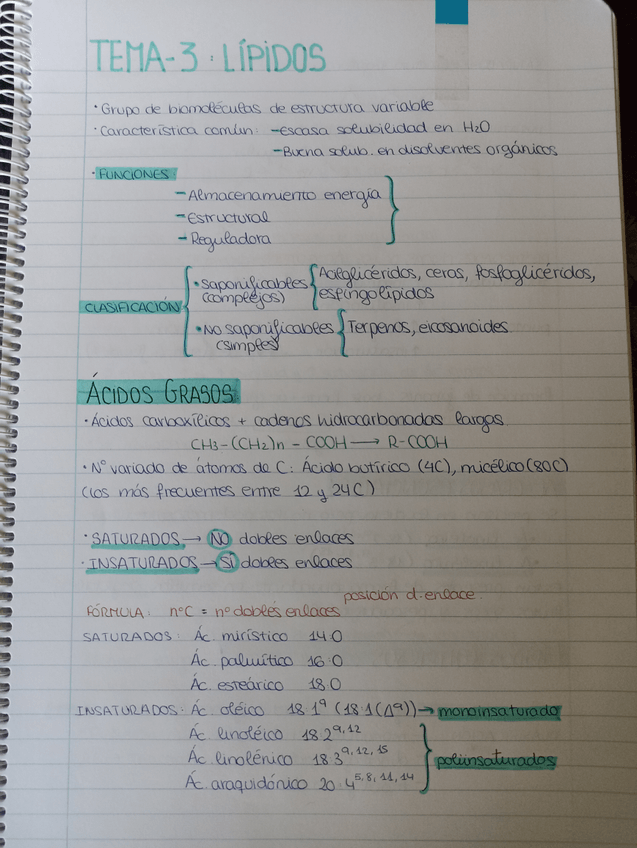 TEMA-3: LÍPIDOS
· Grupo de biomoléculas de estructura variable
· Característica común: - escasa solubilidad en H2O
- Buena solub. en disolventes orgánicos
· FUNCIONES:
- Almacenamiento energía
- Estructural
- Reguladora
CLASIFICACIÓN
· saponificables (complejos)
Acilglicéridos, ceras, fosfoglicéridos,
esfingolípidos
· No saponificables (simples)
Terpenos, eicosanoides
ÁCIDOS GRASOS
· Ácidos carboxílicos + cadenas hidrocarbonadas largas
CH3-(CH2)n - COOH → R-COOH
· Nº variado de átomos de C: Ácido butírico (4C), micélico (80C)
(los más frecuentes entre 12 y 24C)
· SATURADOS → NO dobles enlaces
· INSATURADOS → SÍ dobles enlaces
FÓRMULA: nºC = nº dobles enlaces posición d. enlace
SATURADOS: Ác. mirístico 14:0
Ác. palmítico 16:0
Ác. esteárico 18:0
INSATURADOS: Ác. oléico 18:1⁹ (18:1(Δ⁹)) → monoinsaturado
Ác. linoléico 18:2⁹,¹²
Ác. linolénico 18:3⁹,¹²,¹⁵
Ác. araquidónico 20:4⁵,⁸,¹¹,¹⁴
poliinsaturados